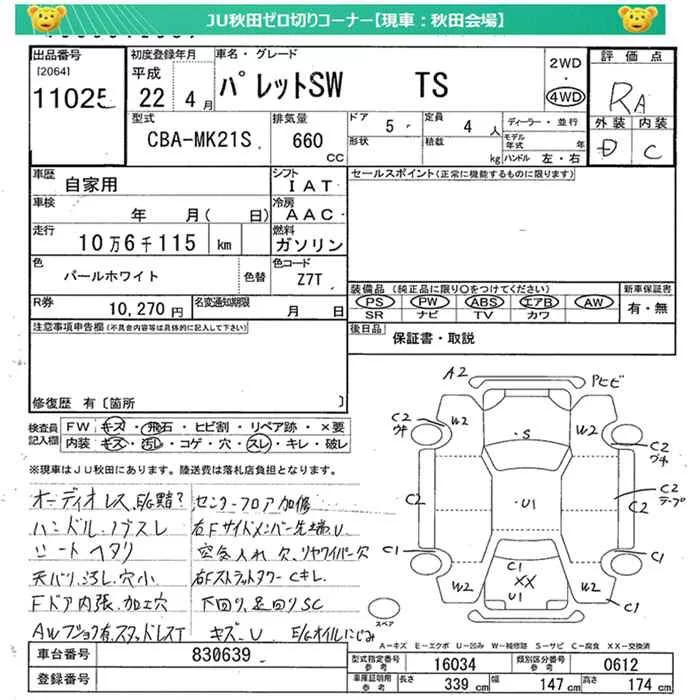 JU秋田ゼロ切りコーナー【現車：秋田会場】
出品番号
[2064]
11025
初度登録年月
平成 22 4月
車名・グレード
パレットSW TS
2WD
・
4WD
評価点
RA
外装 内装
D C
型式
CBA-MK21S
排気量
660 CC
ドア 5
形状
定員 4 人
積載 kg
ディーラー・並行
モデル年式 年
ハンドル 左・右
車歴 自家用
車検 年 月( 日)
走行 10万6千115 km
シフト IAT
冷房 AAC
燃料 ガソリン
色 パールホワイト 色替
色コード Z7T
R券 10,270円
名変通知期限 月 日
セールスポイント(正常に機能するものに限ります)
装備品(純正品に限り○をつけてください)
PS PW ABS エアB AW
SR ナビ TV カワ
新車保証書
有・無
後日品
保証書・取説
注意事項申告欄(不具合内容等は具体的に記入して下さい)
修復歴 有〔箇所 〕
検査員記入欄
FW キズ・飛石・ヒビ割・リペア跡・×要
内装 キズ・汚れ・コゲ・穴・スレ・キレ・破レ
※現車はJU秋田にあります。陸送費は落札店負担となります。
オーディオレス、E/G黯?
ハンドル・ノブスレ
シートヘタリ
天バリ汚レ、穴小
Fドア内張、加工穴
AWブショウ有、スタッドレスT
センターフロア加修
右Fサイドメンバー先端U
空気入れ欠、リヤワイパー欠
右Fストラットタワーcキレ
下回り、足回りSC
キズ・U E/Gオイルにじみ
A2
Pヒビ
W2
W2
C2
ウキ
C2
ウキ
・S
C2
C2
C2
テープ
・U1
C1
C1
C1
XX
U1
W2
W2
C1
スペア
A－キズ E－エクボ U－凹み W－補修跡 S－サビ C－腐食 XX－交換済
車台番号 830639
登録番号
型式指定番号 参考 16034
類別区分番号 参考 0612
車庫証明用 参考 長さ 339cm 幅 147cm 高さ 174cm